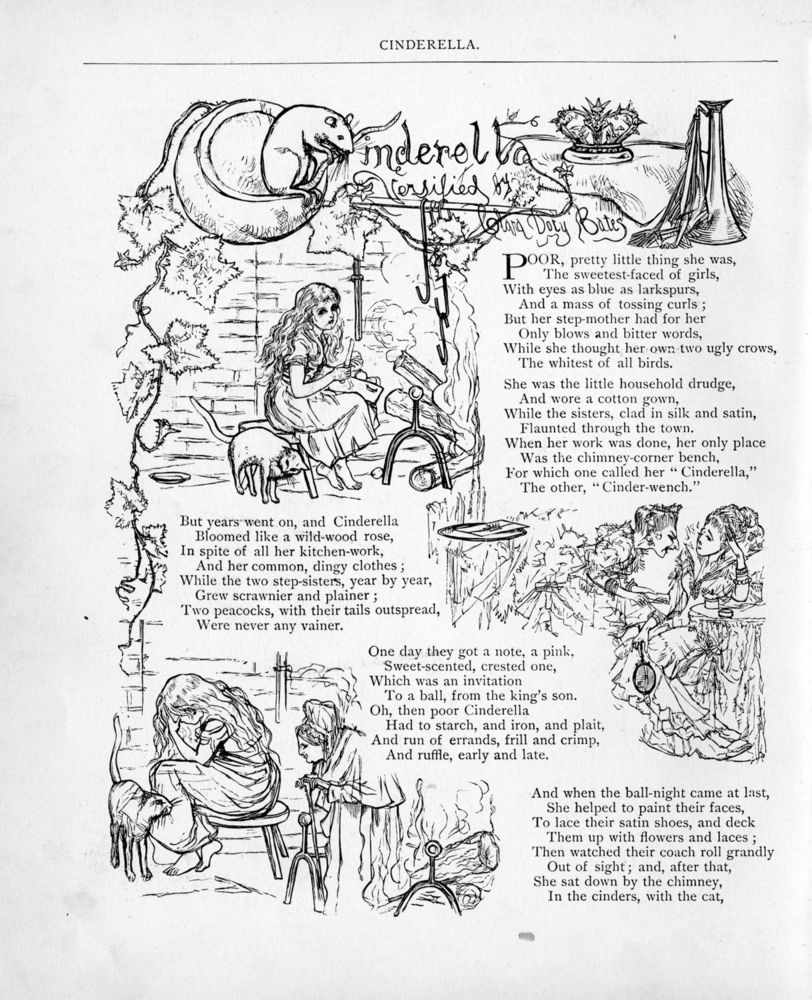 CINDERELLA.
Cinderella
Versified by
Clara Doty Bates
POOR, pretty little thing she was,
The sweetest-faced of girls,
With eyes as blue as larkspurs,
And a mass of tossing curls ;
But her step-mother had for her
Only blows and bitter words,
While she thought her own two ugly crows,
The whitest of all birds.
She was the little household drudge,
And wore a cotton gown,
While the sisters, clad in silk and satin,
Flaunted through the town.
When her work was done, her only place
Was the chimney-corner bench,
For which one called her “ Cinderella,”
The other, “ Cinder-wench.”
But years went on, and Cinderella
Bloomed like a wild-wood rose,
In spite of all her kitchen-work,
And her common, dingy clothes ;
While the two step-sisters, year by year,
Grew scrawnier and plainer ;
Two peacocks, with their tails outspread,
Were never any vainer.
One day they got a note, a pink,
Sweet-scented, crested one,
Which was an invitation
To a ball, from the king’s son.
Oh, then poor Cinderella
Had to starch, and iron, and plait,
And run of errands, frill and crimp,
And ruffle, early and late.
And when the ball-night came at last,
She helped to paint their faces,
To lace their satin shoes, and deck
Them up with flowers and laces ;
Then watched their coach roll grandly
Out of sight ; and, after that,
She sat down by the chimney,
In the cinders, with the cat,